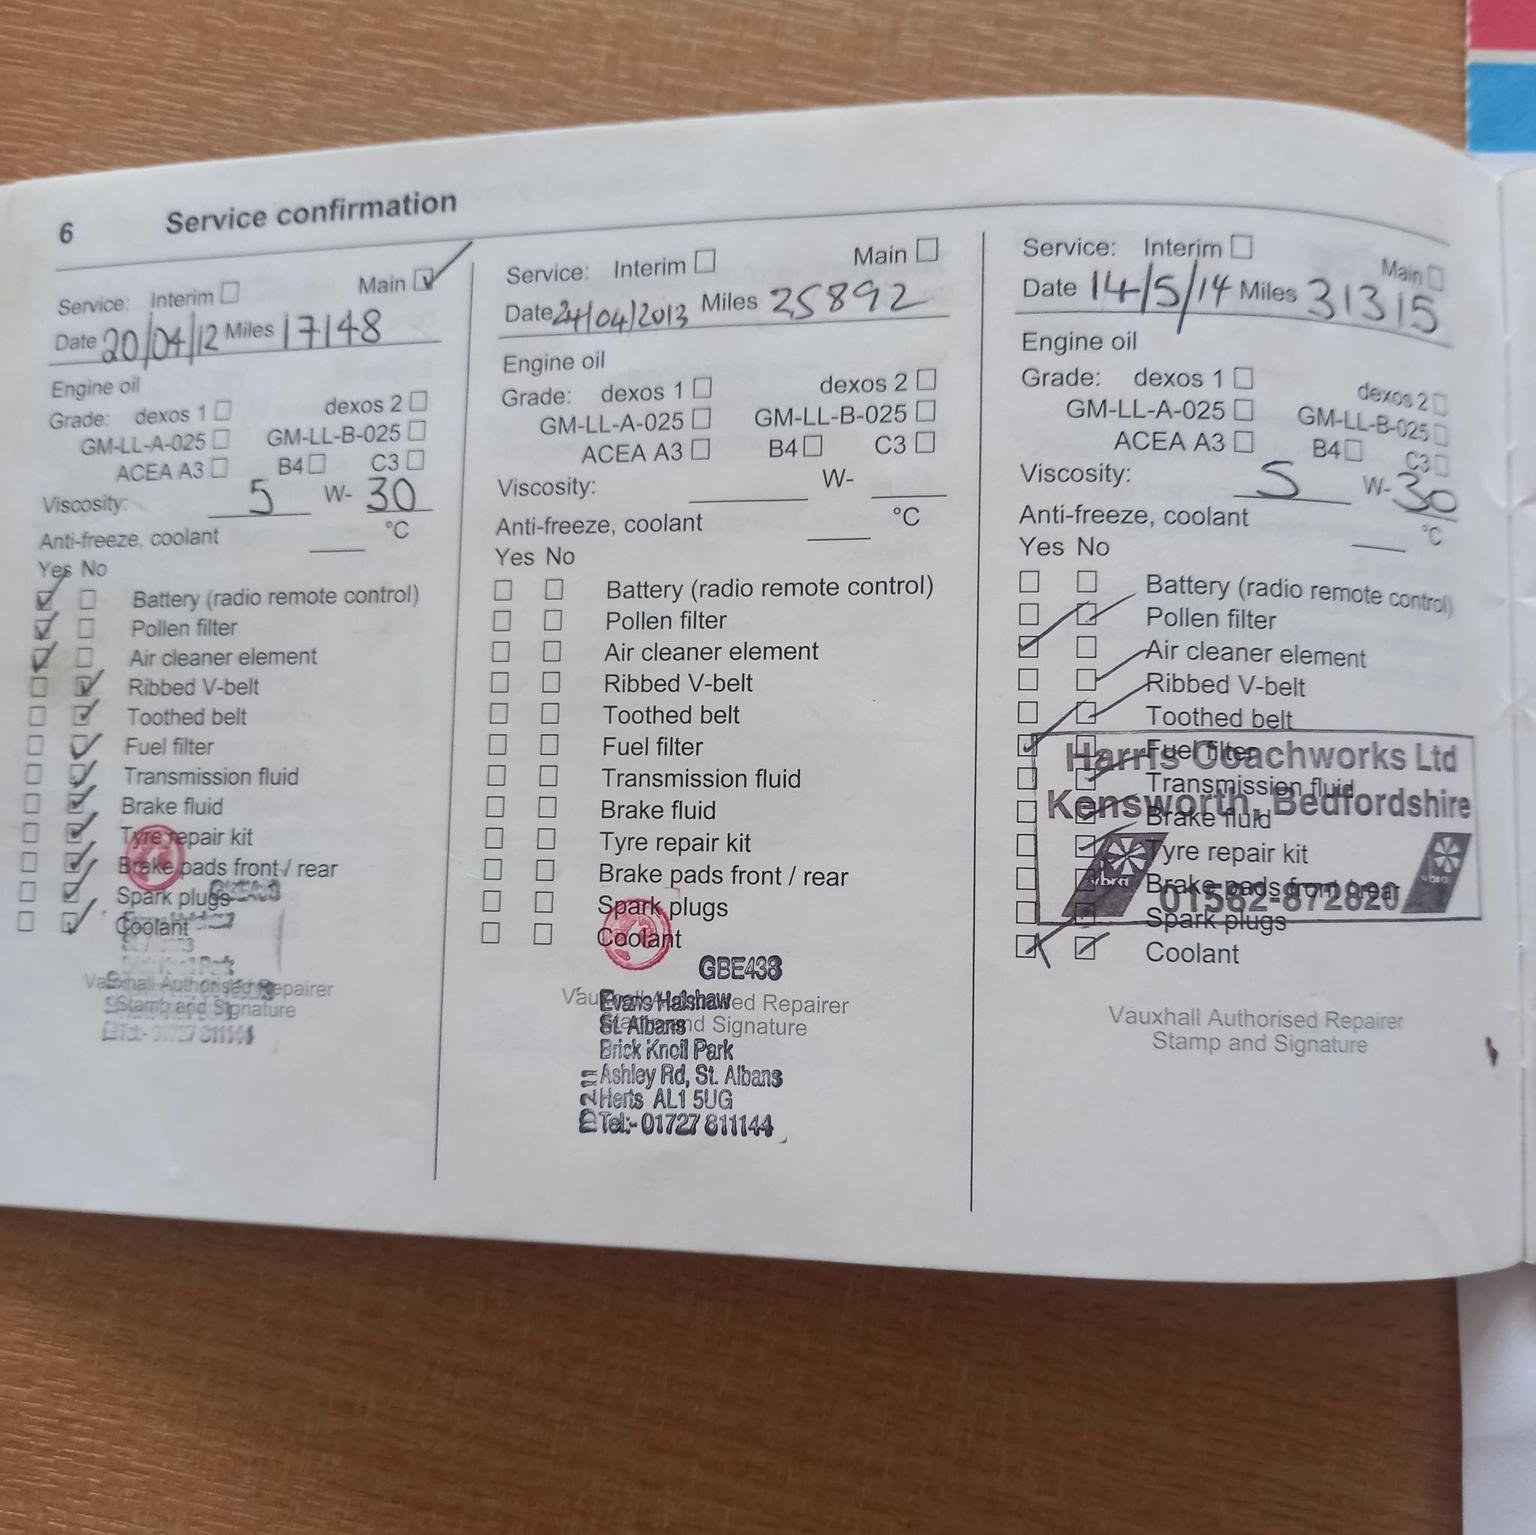 6 Service confirmation
Service: Interim Main
Date 20/04/12 Miles 17148
Engine oil
Grade: dexos 1 dexos 2
GM-LL-A-025 GM-LL-B-025
ACEA A3 B4 C3
Viscosity: 5 W- 30
Anti-freeze, coolant °C
Yes No
Battery (radio remote control)
Pollen filter
Air cleaner element
Ribbed V-belt
Toothed belt
Fuel filter
Transmission fluid
Brake fluid
Tyre repair kit
Brake pads front / rear
Spark plugs
Coolant
Vauxhall Authorised Repairer
Stamp and Signature
Tel:- 01727 811144
Service: Interim Main
Date 24/04/2013 Miles 25892
Engine oil
Grade: dexos 1 dexos 2
GM-LL-A-025 GM-LL-B-025
ACEA A3 B4 C3
Viscosity: W-
Anti-freeze, coolant °C
Yes No
Battery (radio remote control)
Pollen filter
Air cleaner element
Ribbed V-belt
Toothed belt
Fuel filter
Transmission fluid
Brake fluid
Tyre repair kit
Brake pads front / rear
Spark plugs
Coolant
GBE438
Vauxhall Authorised Repairer
Stamp and Signature
Evans Halshaw
St. Albans
Brick Knoll Park
Ashley Rd, St. Albans
Herts AL1 5UG
Tel:- 01727 811144
Service: Interim Main
Date 14/5/14 Miles 31315
Engine oil
Grade: dexos 1 dexos 2
GM-LL-A-025 GM-LL-B-025
ACEA A3 B4 C3
Viscosity: 5 W- 30
Anti-freeze, coolant °C
Yes No
Battery (radio remote control)
Pollen filter
Air cleaner element
Ribbed V-belt
Toothed belt
Fuel filter
Transmission fluid
Brake fluid
Tyre repair kit
Brake pads front / rear
Spark plugs
Coolant
Harris Coachworks Ltd
Kensworth, Bedfordshire
vbra vbra
01582-872820
Vauxhall Authorised Repairer
Stamp and Signature